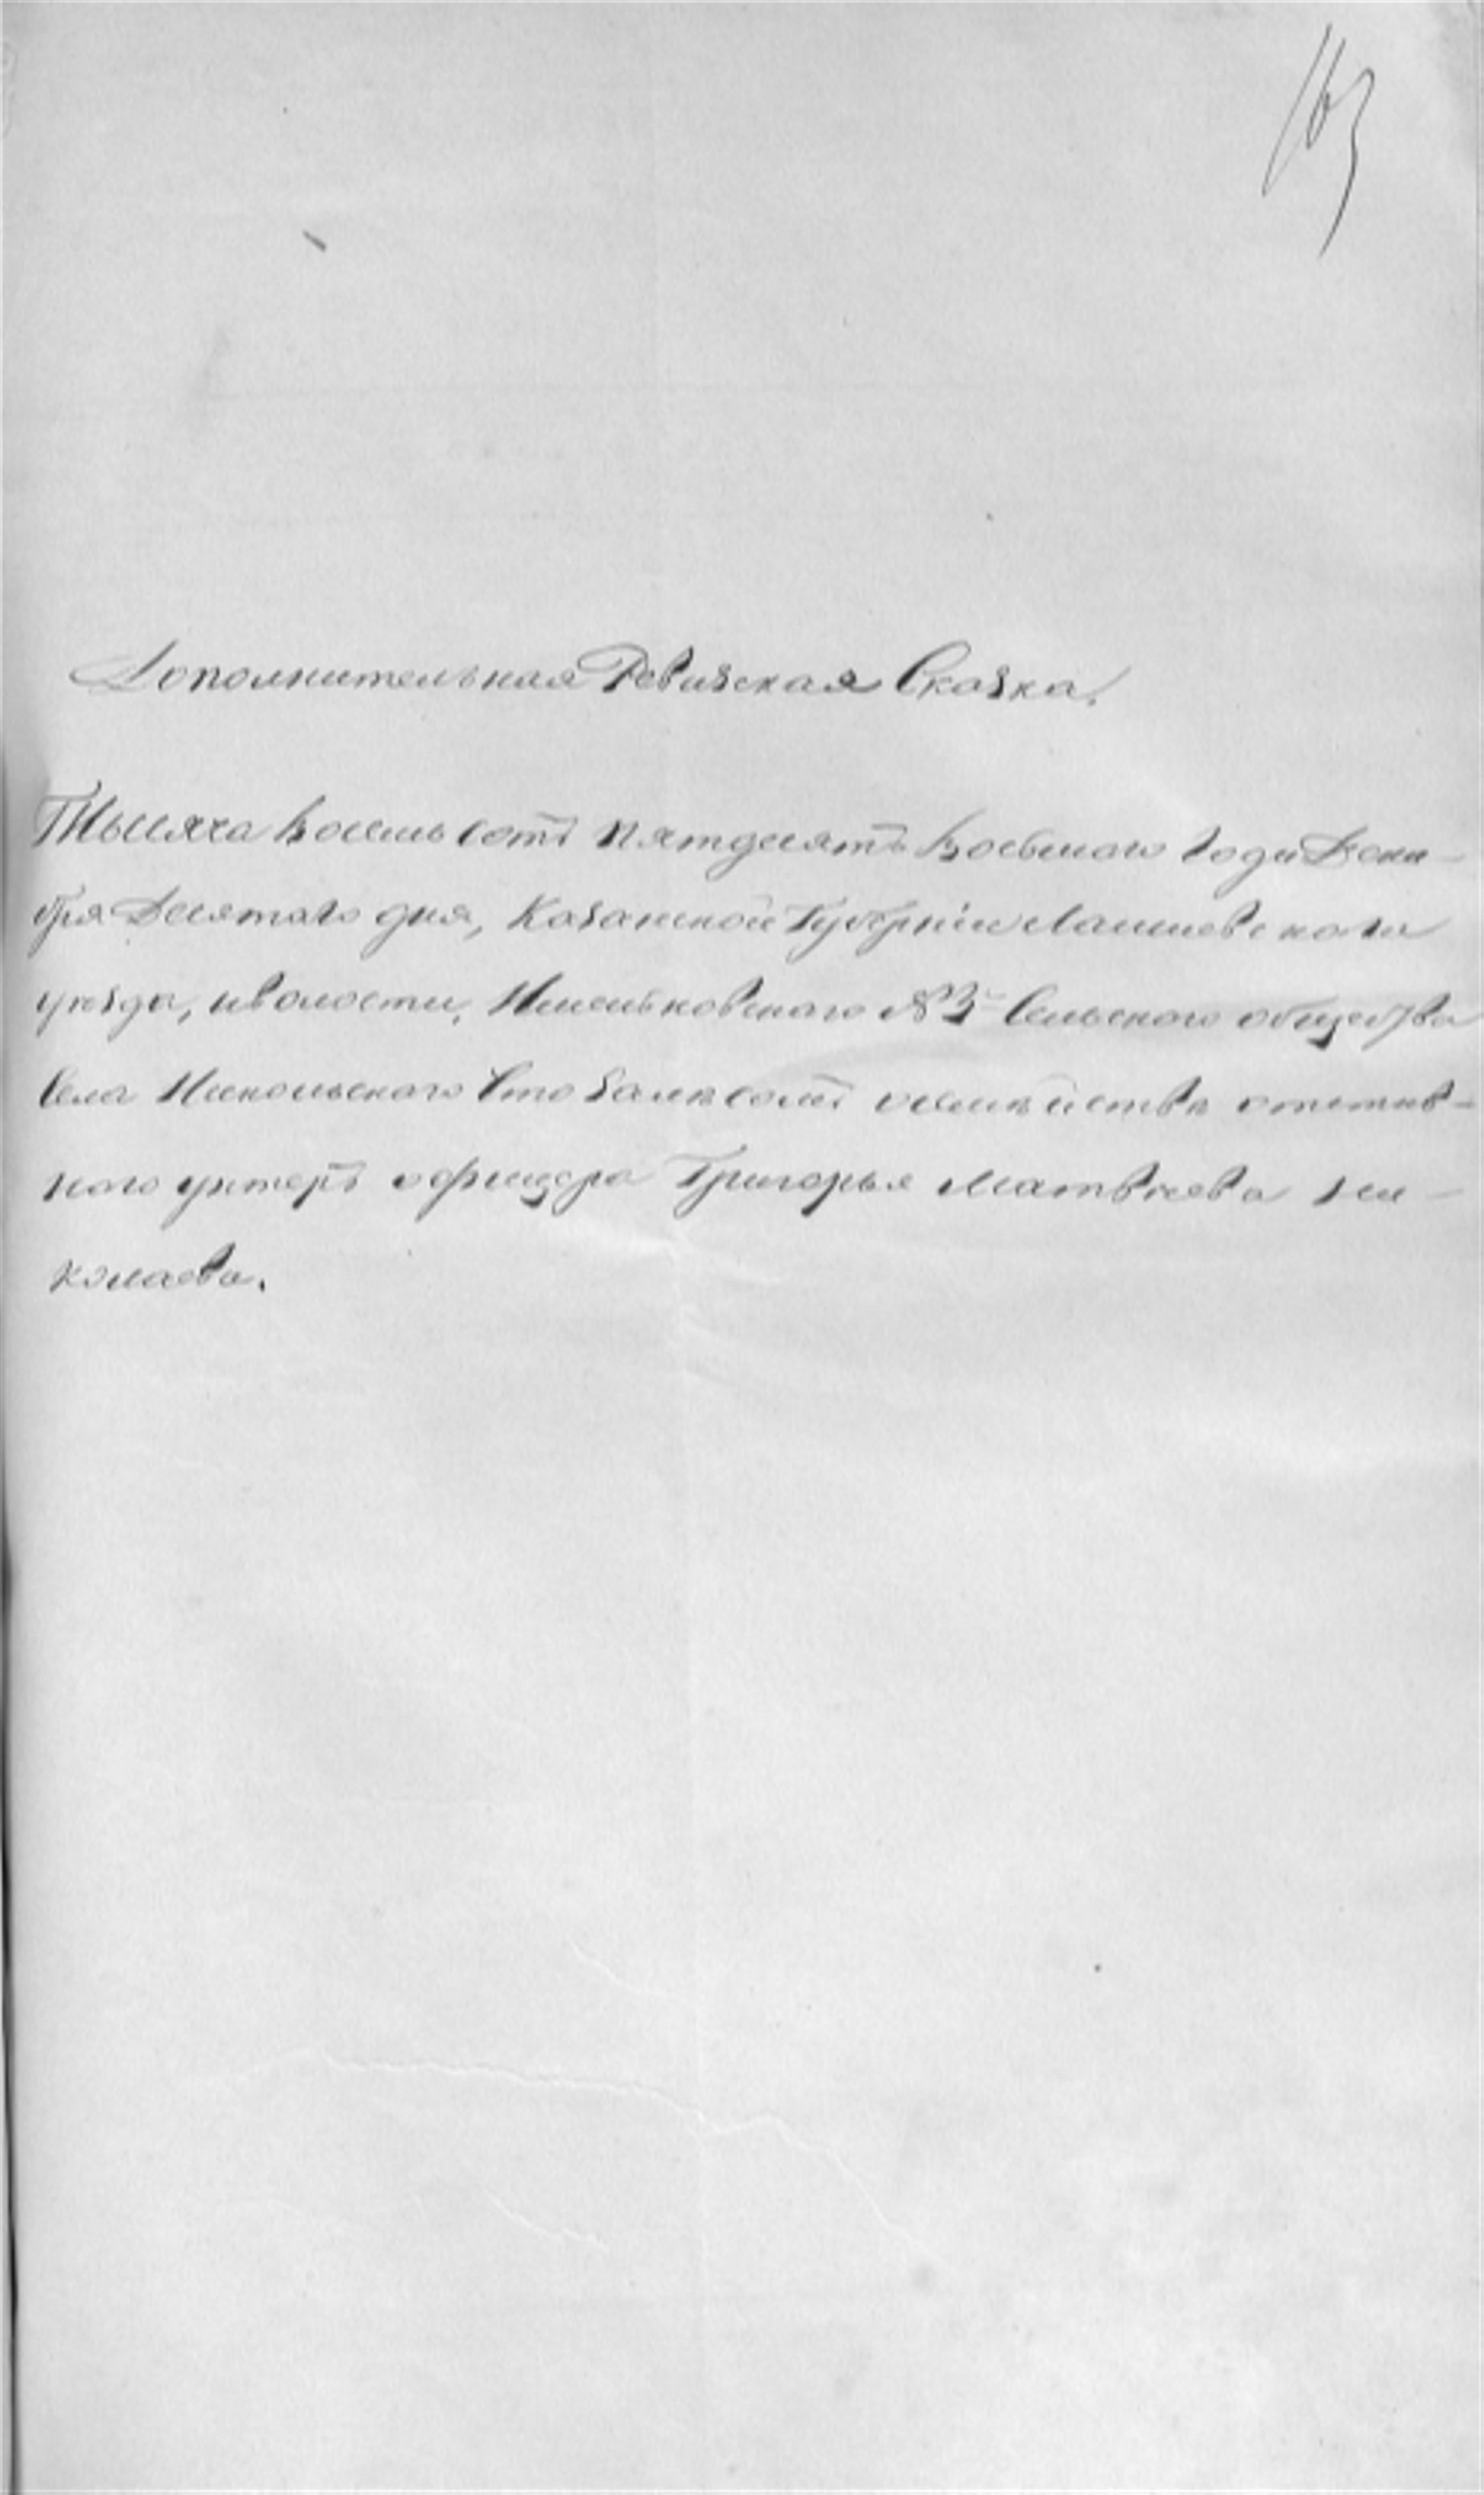 163
Дополнительная Ревизская Сказка.
Тысяча восемь сотъ пятдесятъ восьмого Года Дека-
бря Десятаго дня, Казанской Губерніи Лаишевскаго
уѣзда, и волости, №3 Сельскаго общества
Села Никольскаго о семѣйствѣ отстав-
ного унтеръ офицера Григорья Матвѣева Ни-
колаева.